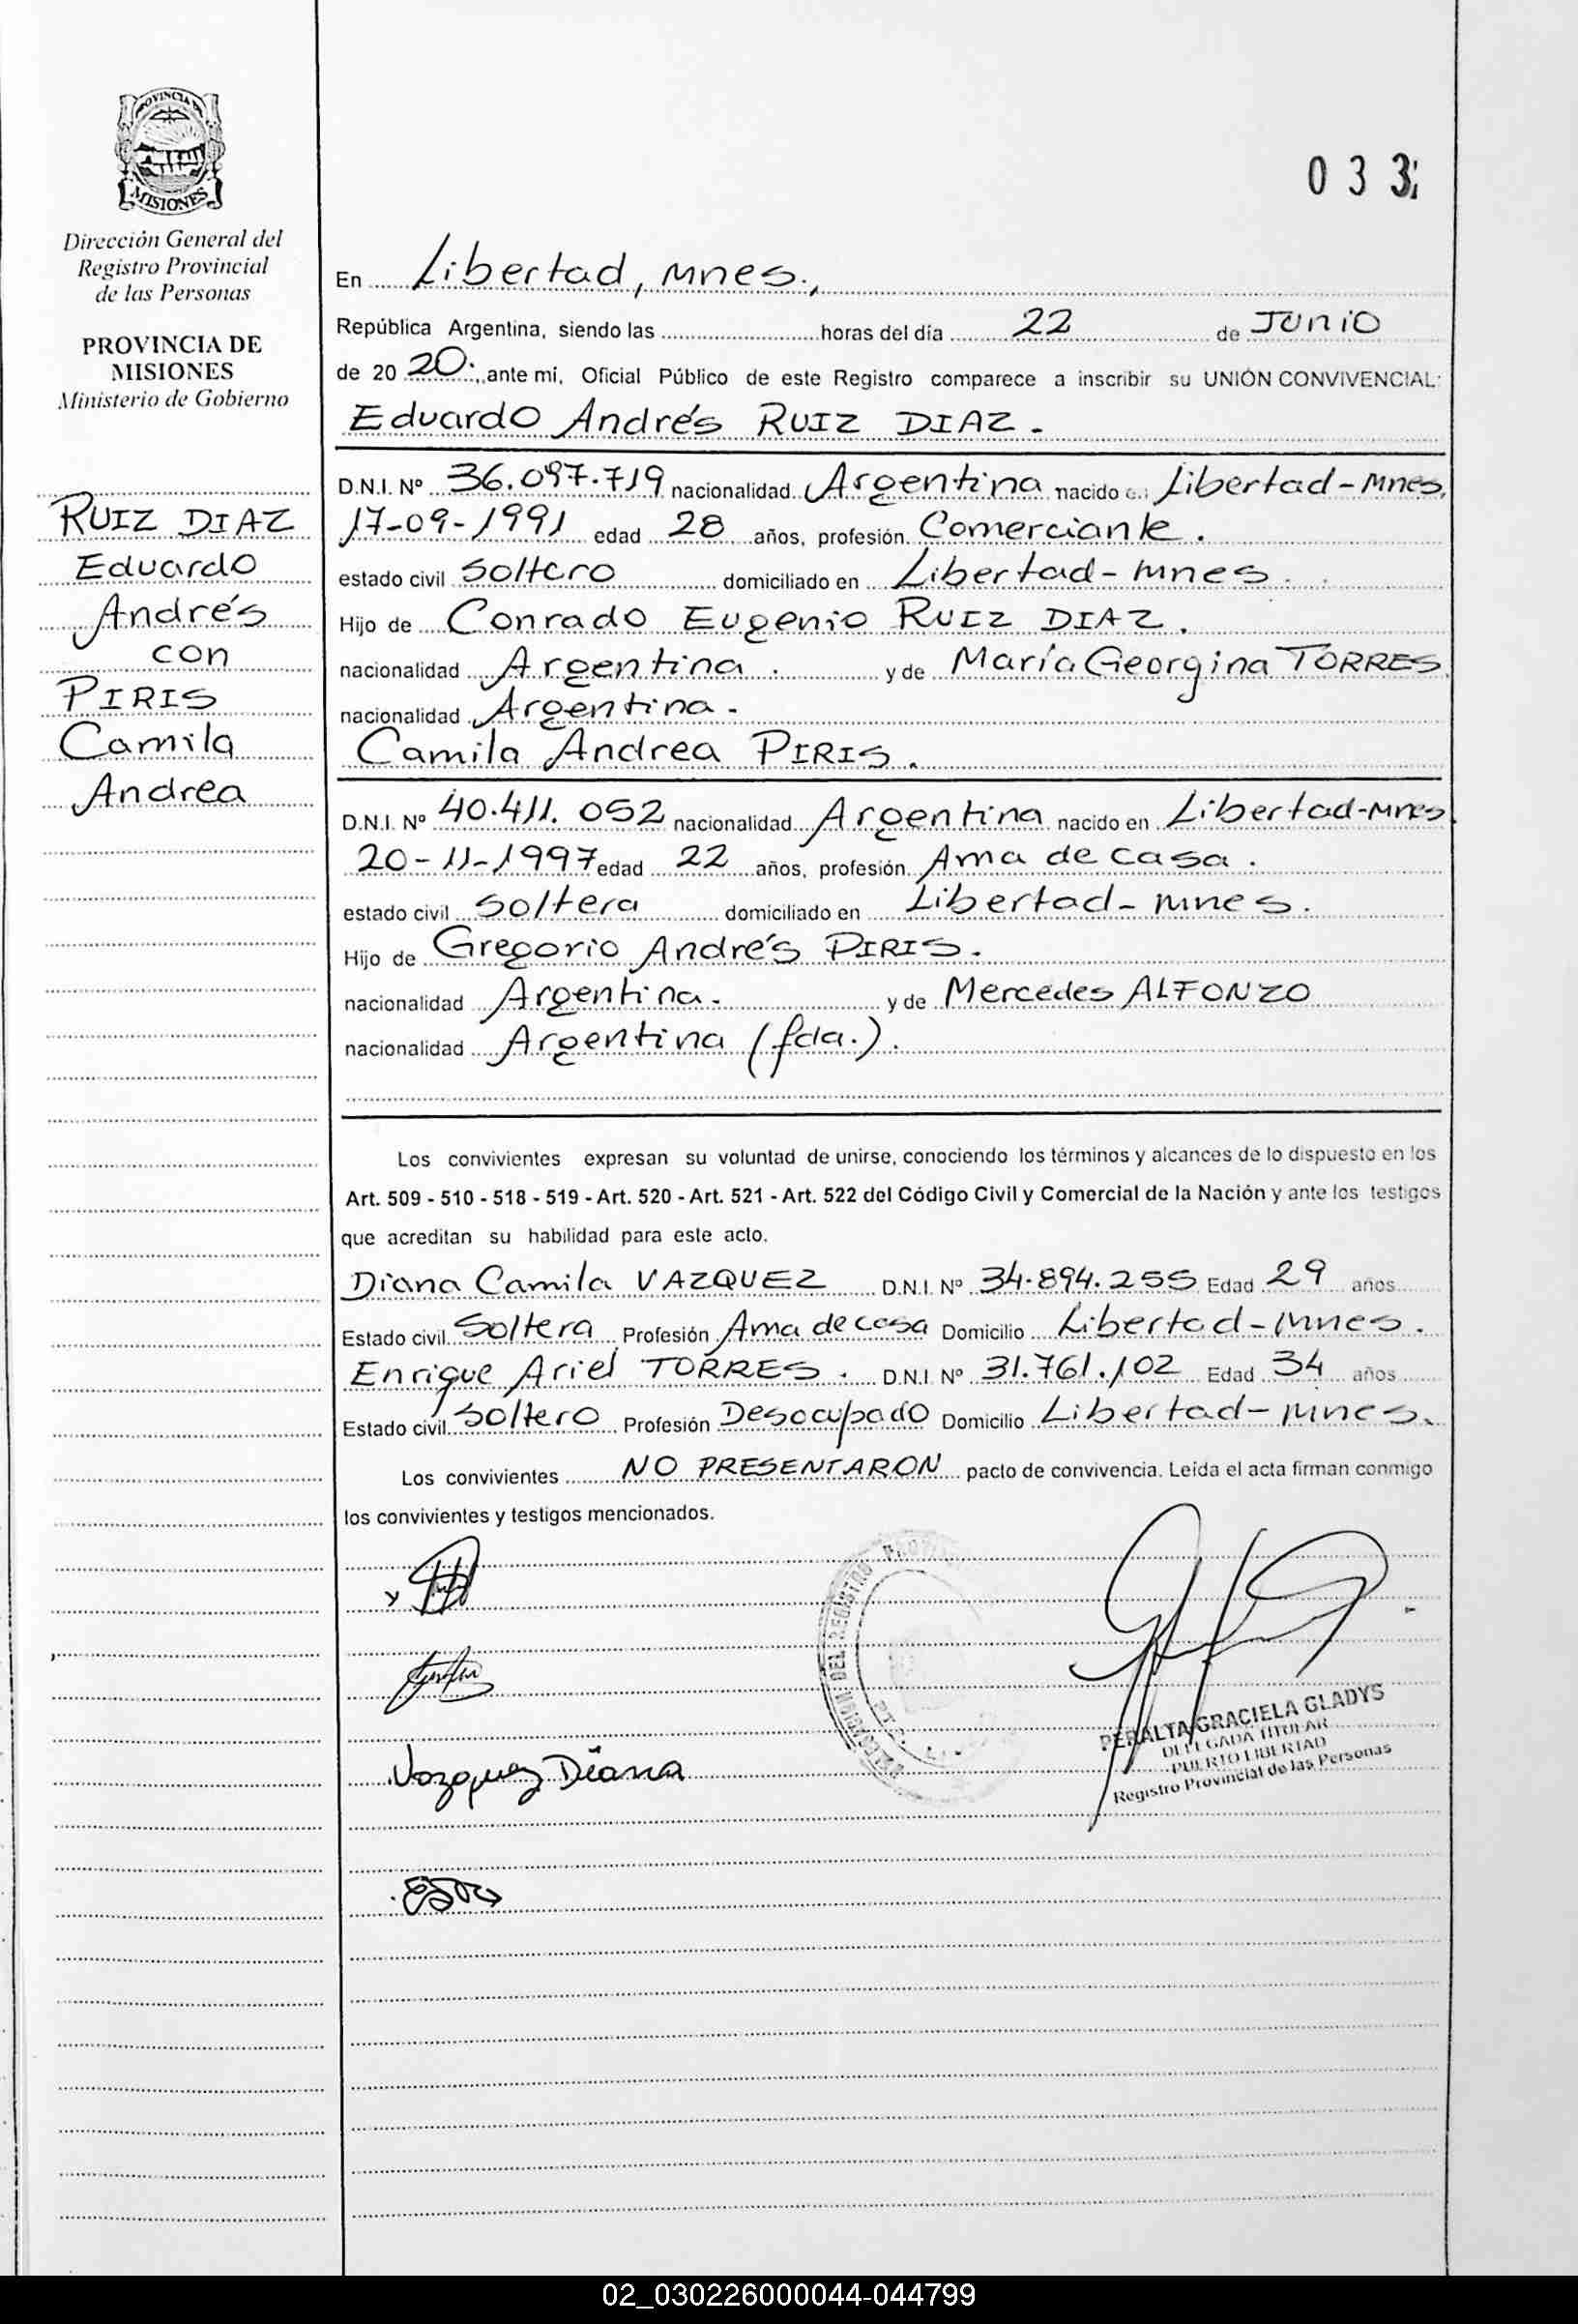 PROVINCIA DE
MISIONES
Dirección General del
Registro Provincial
de las Personas
PROVINCIA DE
MISIONES
Ministerio de Gobierno
RUIZ DIAZ
Eduardo
Andrés
con
PIRIS
Camila
Andrea
033
En Libertad, Mnes.,
República Argentina, siendo las horas del día 22 de Junio
de 20 20. ante mí, Oficial Público de este Registro comparece a inscribir su UNIÓN CONVIVENCIAL:
Eduardo Andrés RUIZ DIAZ.
D.N.I. Nº 36.097.719 nacionalidad Argentina nacido en Libertad-Mnes.
17-09-1991 edad 28 años, profesión Comerciante.
estado civil Soltero domiciliado en Libertad-Mnes.
Hijo de Conrado Eugenio RUIZ DIAZ.
nacionalidad Argentina. y de María Georgina TORRES
nacionalidad Argentina.
Camila Andrea PIRIS.
D.N.I. Nº 40.411.052 nacionalidad Argentina nacido en Libertad-Mnes.
20-11-1997 edad 22 años, profesión Ama de casa.
estado civil Soltera domiciliado en Libertad-Mnes.
Hijo de Gregorio Andrés PIRIS.
nacionalidad Argentina. y de Mercedes ALFONZO
nacionalidad Argentina (fda.).
Los convivientes expresan su voluntad de unirse, conociendo los términos y alcances de lo dispuesto en los
Art. 509 - 510 - 518 - 519 - Art. 520 - Art. 521 - Art. 522 del Código Civil y Comercial de la Nación y ante los testigos
que acreditan su habilidad para este acto.
Diana Camila VAZQUEZ D.N.I. Nº 34.894.255 Edad 29 años
Estado civil Soltera Profesión Ama de casa Domicilio Libertad-Mnes.
Enrique Ariel TORRES. D.N.I. Nº 31.761.102 Edad 34 años
Estado civil Soltero Profesión Desocupado Domicilio Libertad-Mnes.
Los convivientes NO PRESENTARON pacto de convivencia. Leída el acta firman conmigo
los convivientes y testigos mencionados.
DELEGACION DEL REGISTRO
Vazquez Diana
PERALTA GRACIELA GLADYS
DELEGADA TITULAR
PUERTO LIBERTAD
Registro Provincial de las Personas
02_030226000044-044799